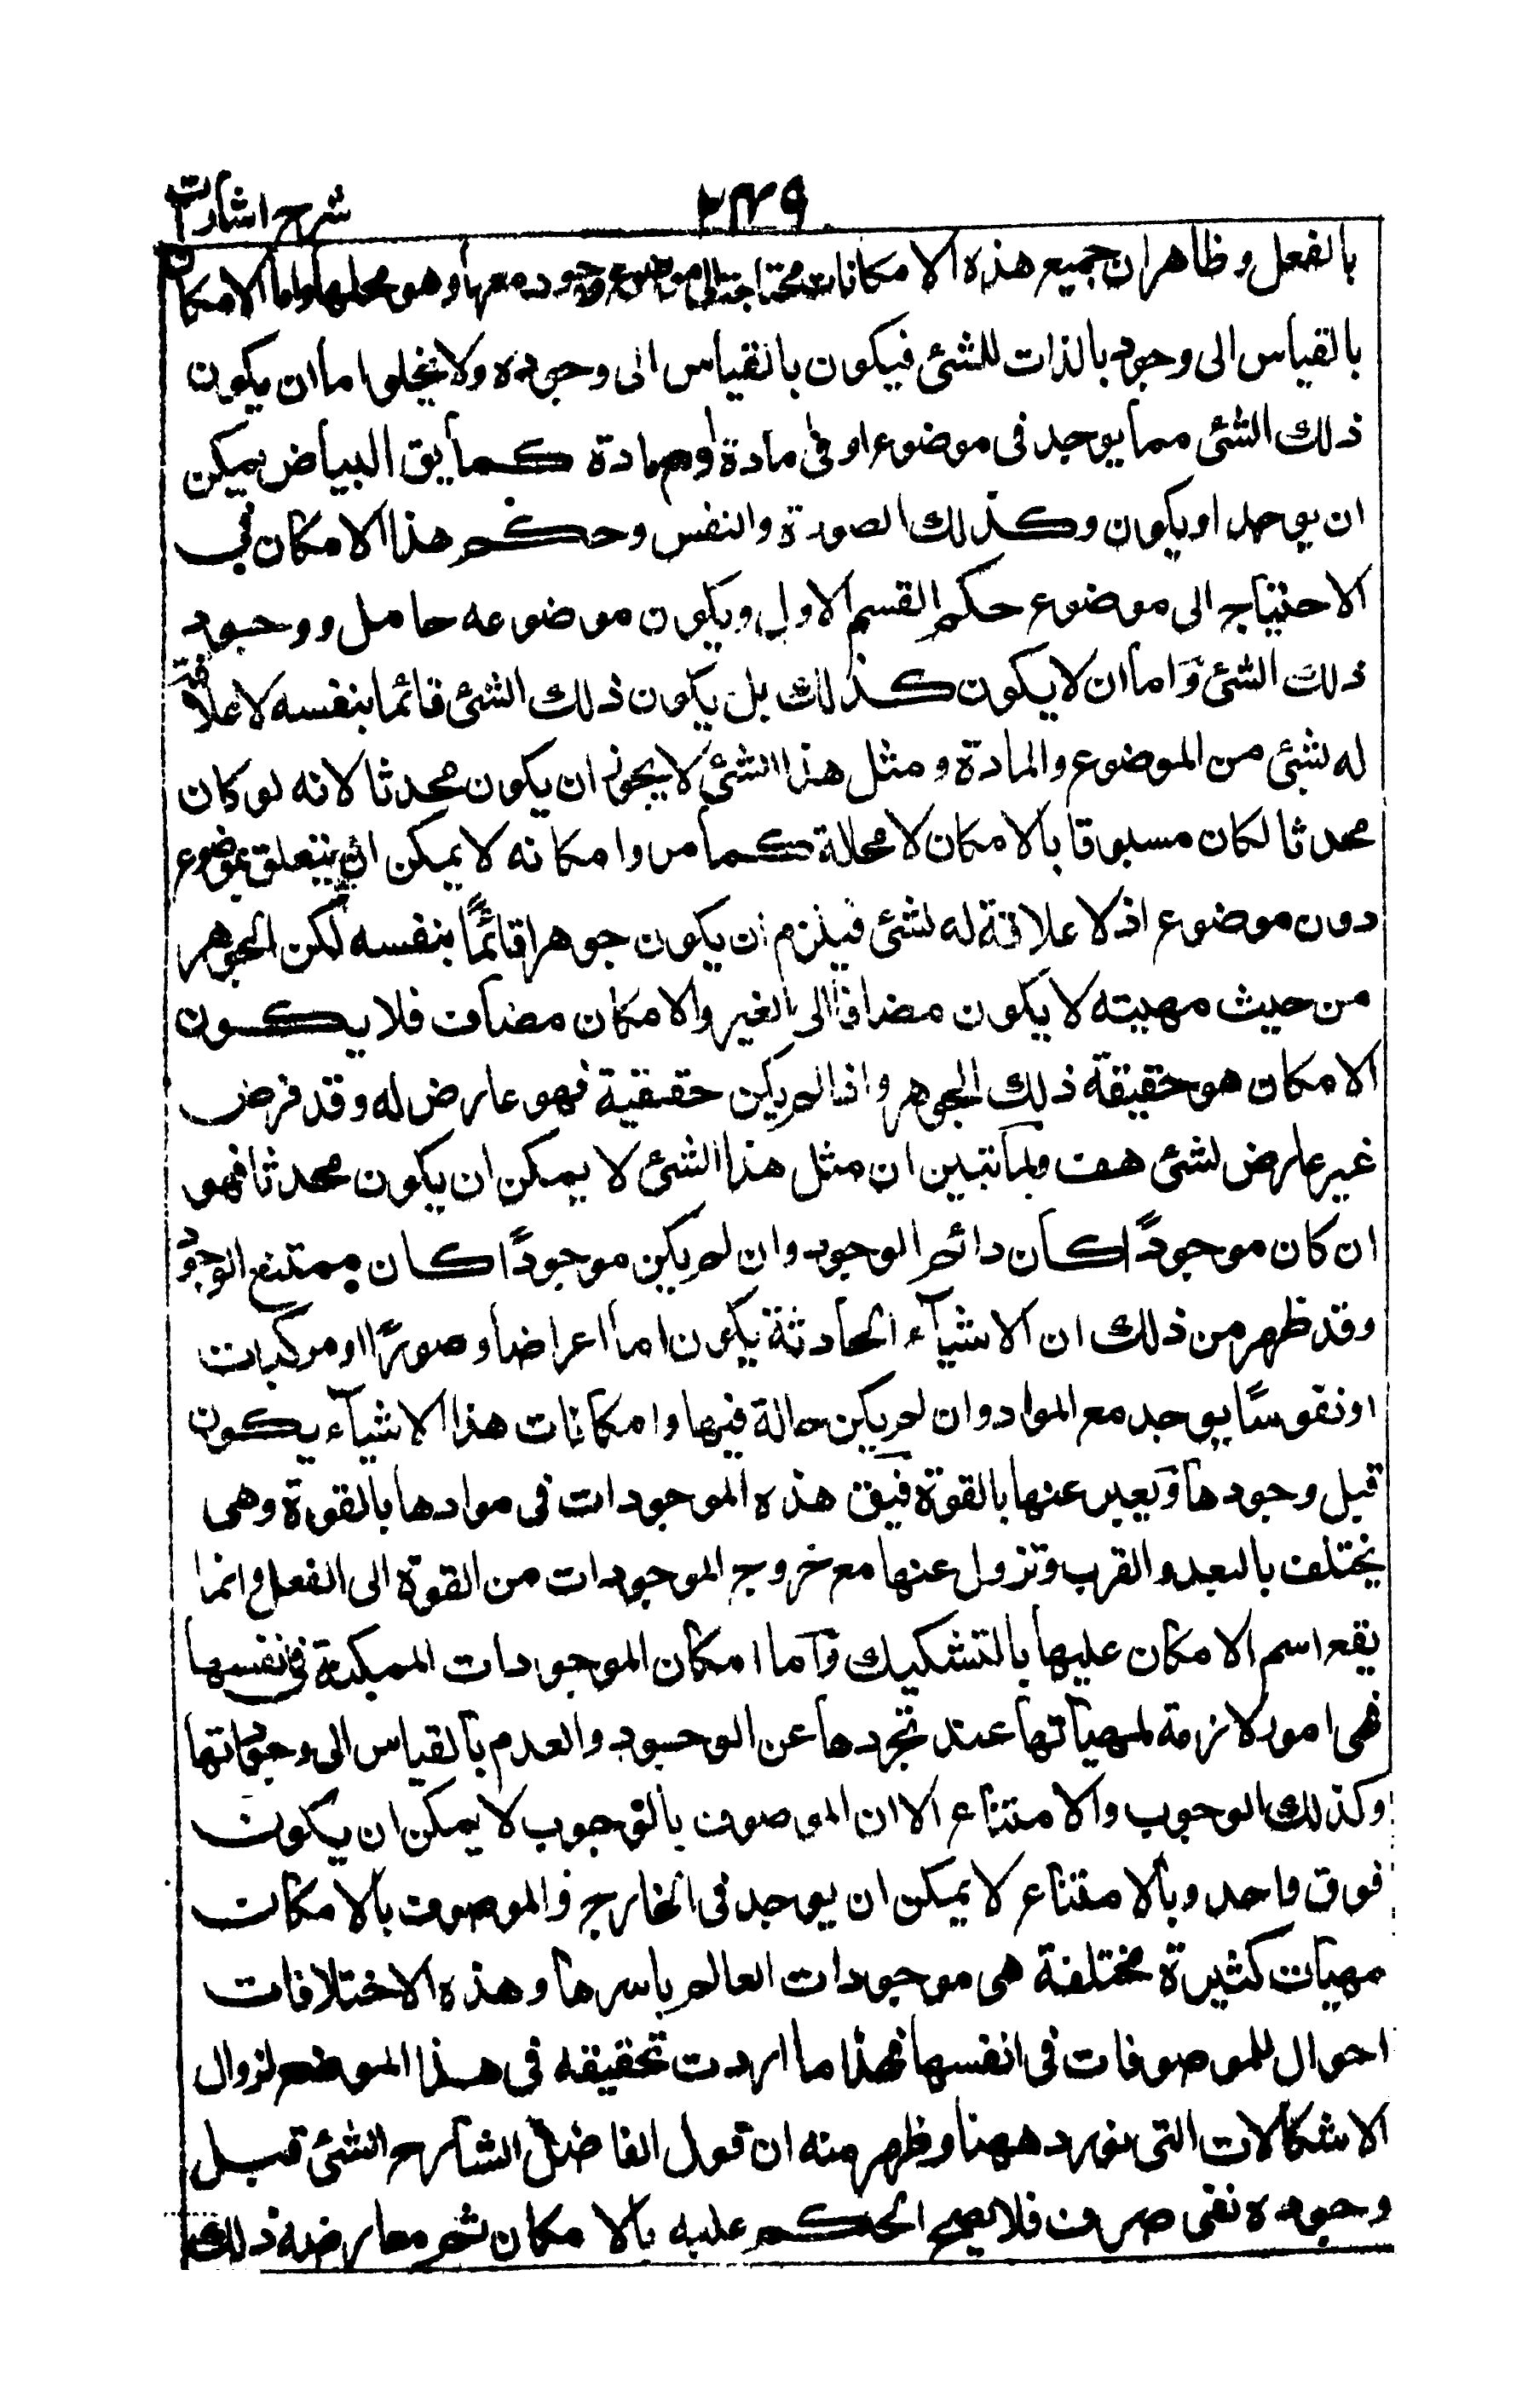 شرح اشارات
٢٣٩
بالفعل وظاهر ان جميع هذه الامكانات محتاجة الى موضوع وجوده معها وهو محلها واما الامكان
بالقياس الى وجود بالذات للشئ فيكون بالقياس الى وجوده ولا يخلوا اما ان يكون
ذلك الشئ مما يوجد فى موضوع او فى مادة او مع مادة كما يق البياض يمكن
ان يوجد او يكون وكذلك الصورة والنفس وحكم هذا الامكان فى
الاحتياج الى موضوع حكم القسم الاول ويكون موضوعه حامل ووجود
ذلك الشئ واما ان لا يكون كذلك بل يكون ذلك الشئ قائما بنفسه لا علاقة
له لشئ من الموضوع والمادة ومثل هذا الشئ لا يجوز ان يكون محدثا لانه لو كان
محدثا لكان مسبوقا بالامكان لا محالة كما مر وامكانه لا يمكن ان يتعلق بموضوع
دون موضوع اذ لا علاقة له لشئ فيلزم ان يكون جوهرا قائمًا بنفسه لكن الجوهر
من حيث مهيته لا يكون مضافا الى الغير والامكان مضاف فلا يكون
الامكان هو حقيقة ذلك الجوهر واذا لم يكن حقيقية فهو عارض له وقد فرض
غير عارض لشئ هف ولما تبين ان مثل هذا الشئ لا يمكن ان يكون محدثا فهو
ان كان موجودًا كان دائم الوجود وان لم يكن موجودًا كان ممتنع الوجود
وقد ظهر من ذلك ان الاشياء الحادثة يكون اما اعراضا وصورًا او مركبات
او نفوسًا يوجد مع المواد وان لم يكن حالة فيها وامكانات هذا الاشياء يكون
قبل وجودها ويعبر عنها بالقوة فيق هذه الموجودات فى موادها بالقوة وهى
يختلف بالبعد والقرب وتزول عنها مع خروج الموجودات من القوة الى الفعل وانما
يقع اسم الامكان عليها بالتشكيك واما امكان الموجودات الممكنة فى نفسها
فهى امور لازمة لمهياتها عند تجردها عن الوجود والعدم بالقياس الى وجوداتها
وكذلك الوجوب والامتناع الا ان الموصوف بالوجوب لا يمكن ان يكون
فوق واحد وبالامتناع لا يمكن ان يوجد فى الخارج والموصوف بالامكان
مهيات كثيرة مختلفة هى موجودات العالم باسرها وهذه الاختلافات
احوال للموصوفات فى انفسها فهذا ما اردت تحقيقه فى هذا الموضع لزوال
الاشكالات التى نورد ههنا وظهر منه ان قول الفاضل الشارح الشئ قبل
وجوده نفى صرف فلا يصح الحكم عليه بالامكان ثم معارضة ذلك